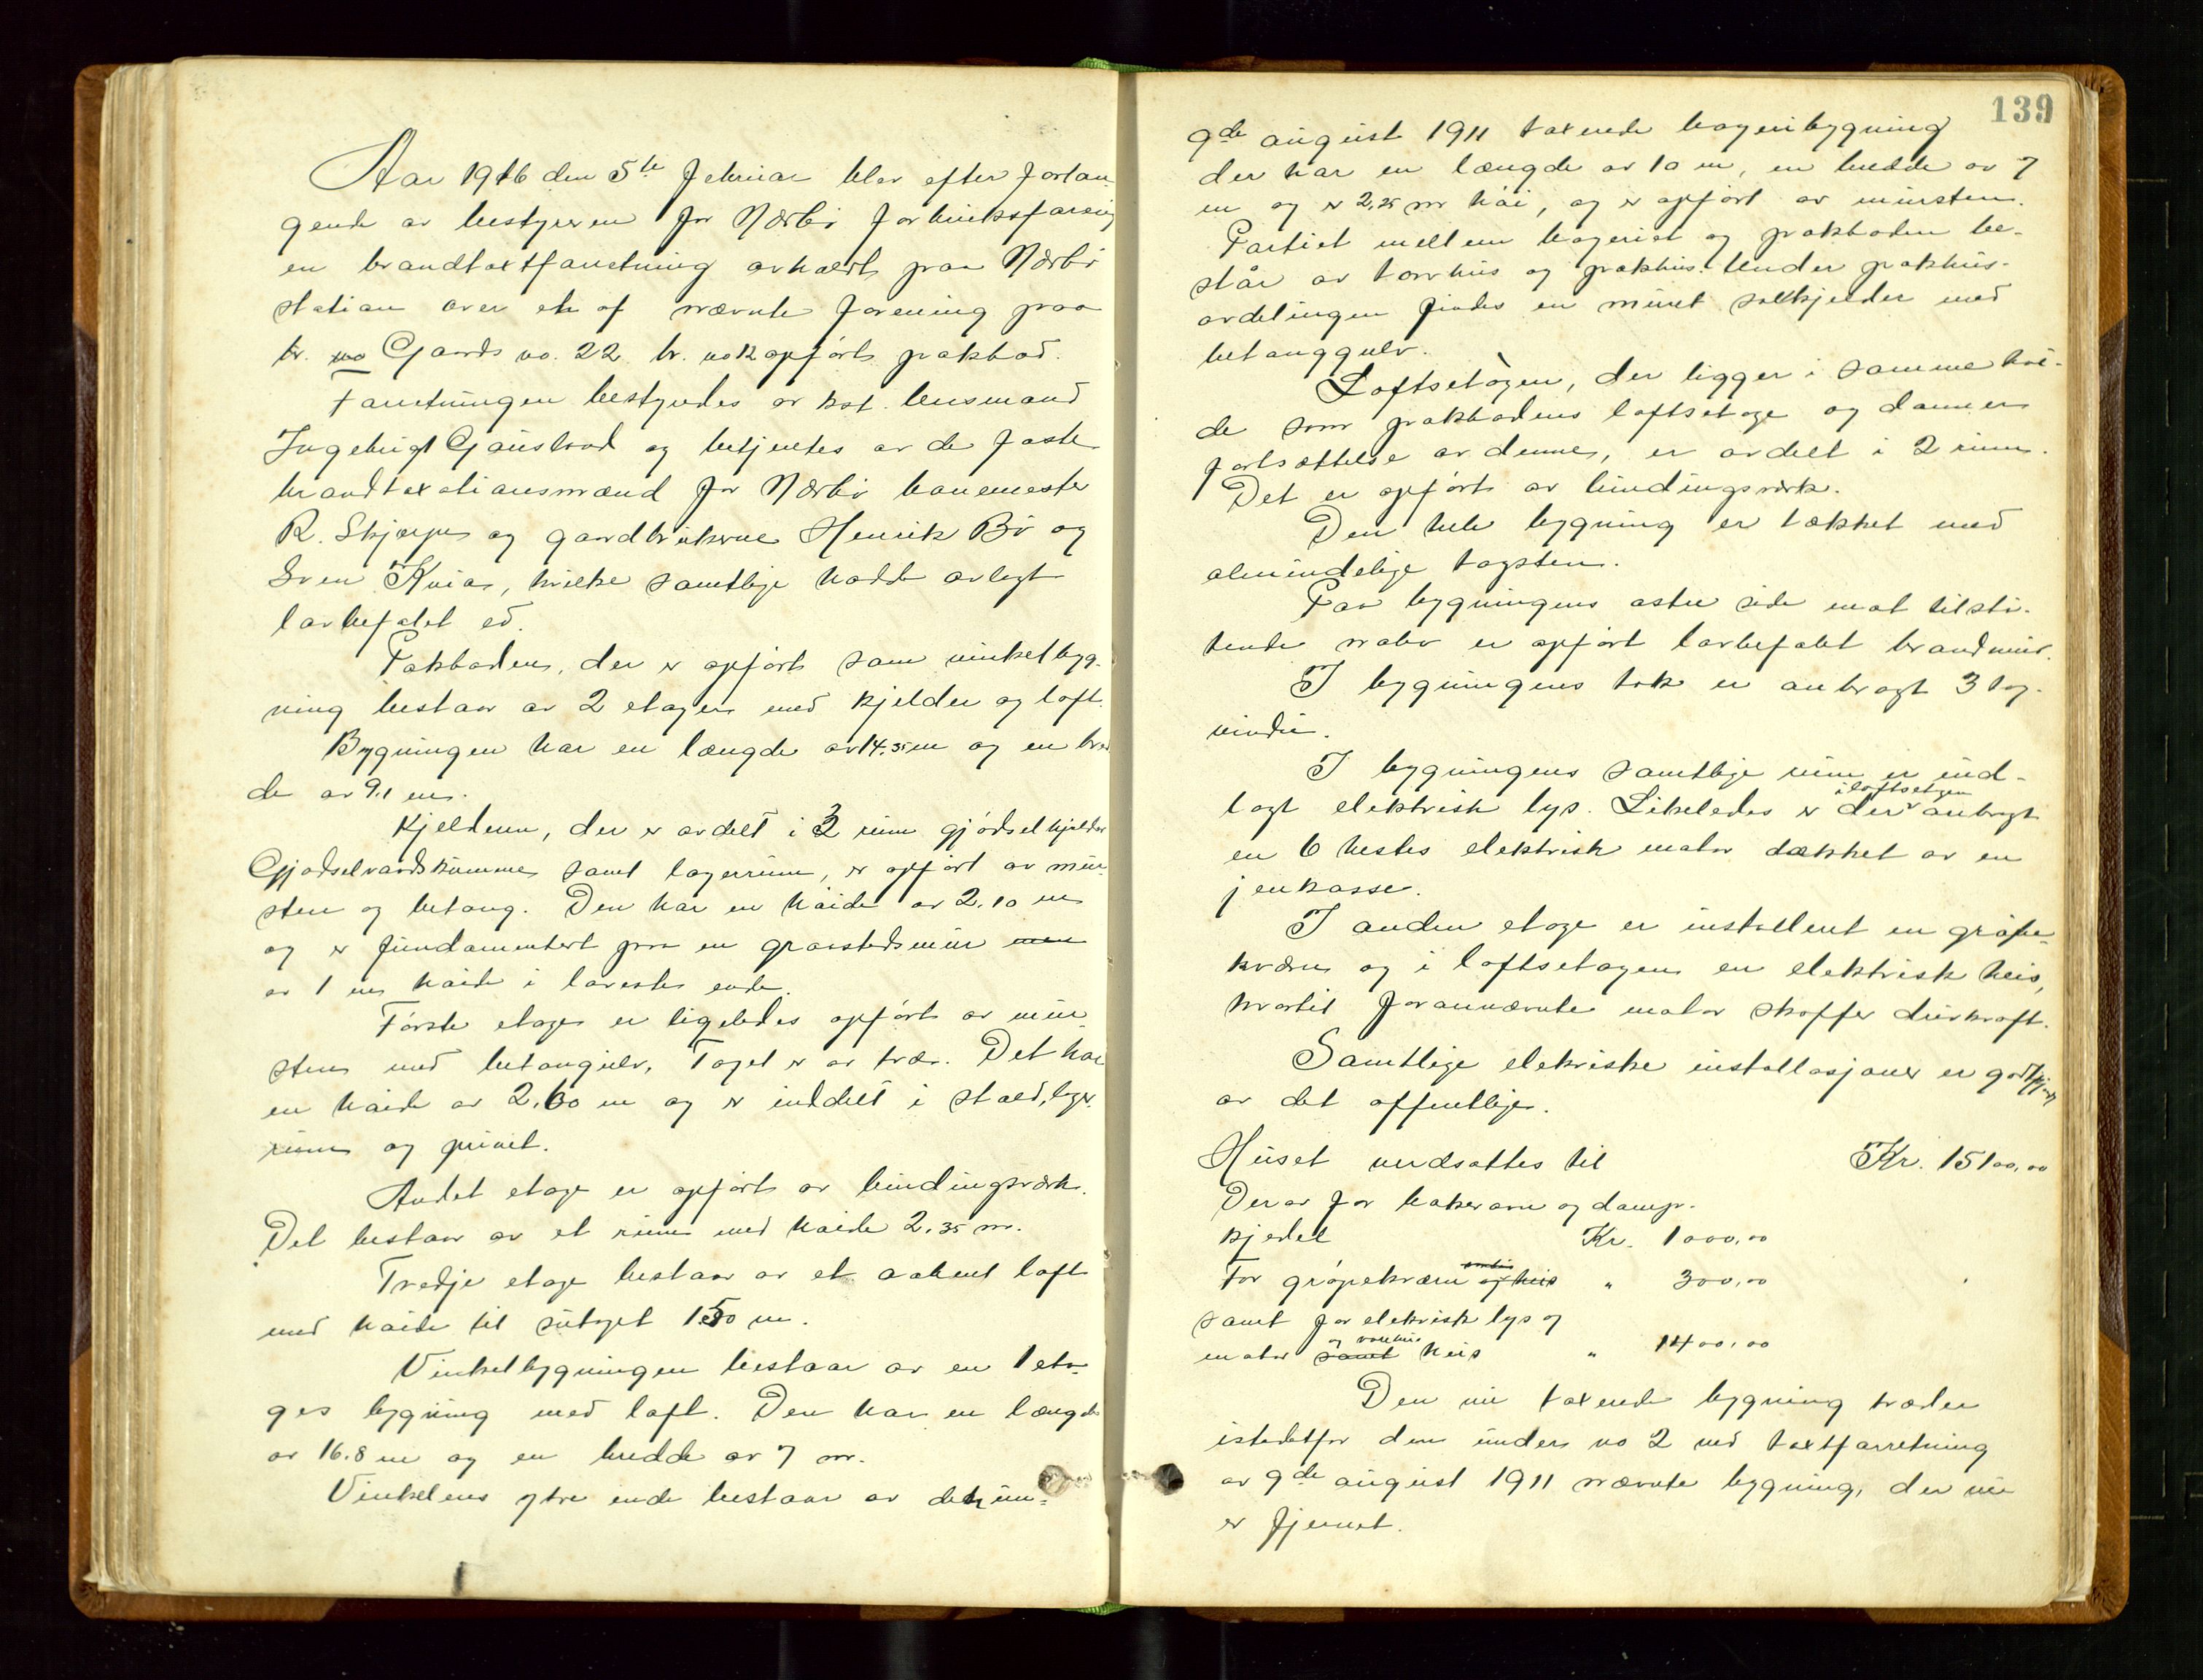 Aar 1916 den 5te februar blev efter forlan-
gende av bestyreren for Nærbø forbruksforening
en brandtaxtforretning avholdt paa Nærbø
station over et af nævnte forening paa
br. no Gaards no. 22 br. no 12 opført pakbod.
Forretningen bestyredes av kst. lensmand
Ingebrigt Gausland og betjentes av de faste
brandtaxationsmænd for Nærbø banemester
R. Skjærpe og gaardbrukerne Henrik Bø og
Sven Kvia, hvilke samtlige hadde avlagt
lovbefalet ed.
Pakboden, der er opført som vinkelbyg-
ning bestaar av 2 etager med kjelder og loft.
Bygningen har en længde av 14.35 m og en bred
de av 9.1 m.
Kjelderen, der er avdelt i 2 rum gjødselkjelder
Gjødselvandskumme samt lagerrum, er opført av mur-
sten og betong. Den har en høide av 2.10 m
og er fundamentert paa en graastensmur men
av 1 m høide i laveste ende.
Første etage er ligeledes opført av mur
sten med betongulv. Taget er av træ. Det har
en høide av 2.60 m og er inddelt i stald, lager
rum og privet.
Andet etage er opført av bindingsverk.
Det bestaar av et rum med høide 2.35 m.
Tredje etage bestaar av et aabent loft
med høide til sutaget 1.50 m.
Vinkelbygningen bestaar av en 1 eta-
ges bygning med loft. Den har en længde
av 16.8 m og en bredde av 7 m.
Vinkelens ytre ende bestaar av den un-
139
9de august 1911 taxerede bageribygning
der har en længde av 10 m, en bredde av 7
m og er 2,25 m høi, og er opført av mursten.
Partiet mellem bageriet og pakboden be-
står av torvhus og pakhus. Under pakhus-
avdelingen findes en muret saltkjelder med
betonggulv.
Loftsetagen, der ligger i samme høi-
de som pakbodens loftsetage og danner
fortsættelse av denne, er avdelt i 2 rum.
Det er opført av bindingsverk.
Den hele bygning er tækket med
almindelige tagsten.
Paa bygningens østre side mot tilstø-
tende nabo er opført lovbefalet brandmur.
I bygningens tak er anbragt 3 tag-
vinduer.
I bygningens samtlige rum er ind-
i loftsetagen
lagt elektrisk lys. Likeledes er der anbragt
en 6 hestes elektrisk motor dækket av en
jernkasse.
I anden etage er installeret en grøpe-
kværn og i loftsetagen en elektrisk heis,
hvortil forannævnte motor skaffer drivkraft.
Samtlige elekriske installasjoner er godkjendt
av det offentlige.
Huset verdsattes til Kr. 15100,00
Derav for bakerovn og damp-
kjedel Kr. 1000,00
For grøpekværn og heis " 300,00
samt for elektrisk lys og
motor samt heis " 1400,00
Den nu taxerede bygning træder
istedetfor den under no 2 ved taxtforretning
av 9de august 1911 nævnte bygning, der nu
er fjernet.